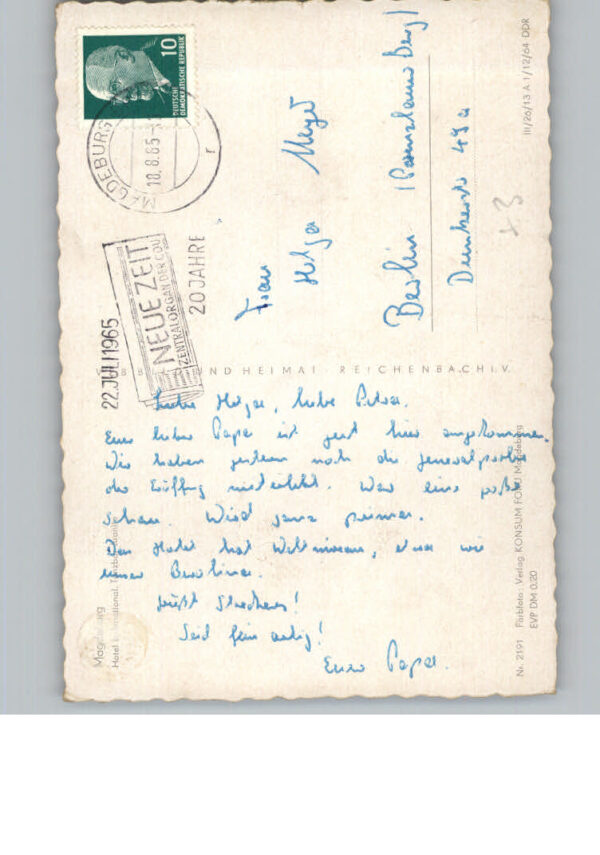 10
DEUTSCHE
DEMOKRATISCHE REPUBLIK
MAGDEBURG
18.8.65
r
NEUE ZEIT
ZENTRALORGAN DER CDU
20 JAHRE
22. JULI 1965
Frau
Helga Meyer
Berlin
49a
III/26/13 A 1/12/64 DDR
UND HEIMAT REICHENBACH I. V.
Liebe Helga, liebe Petra.
Euer lieber Papa ist gut hier angekommen.
Wir haben gestern noch die Generalprobe
der miterlebt. War eine
Schau. Wird ganz prima.
Das Hotel hat Weltniveau, etwa wie
unser Berolina.
Seid fein artig!
Euer Papa.
Magdeburg
Hotel International,
Nr. 2191 Farbfoto: Verlag KONSUM FOTO Magdeburg
EVP DM 0,20